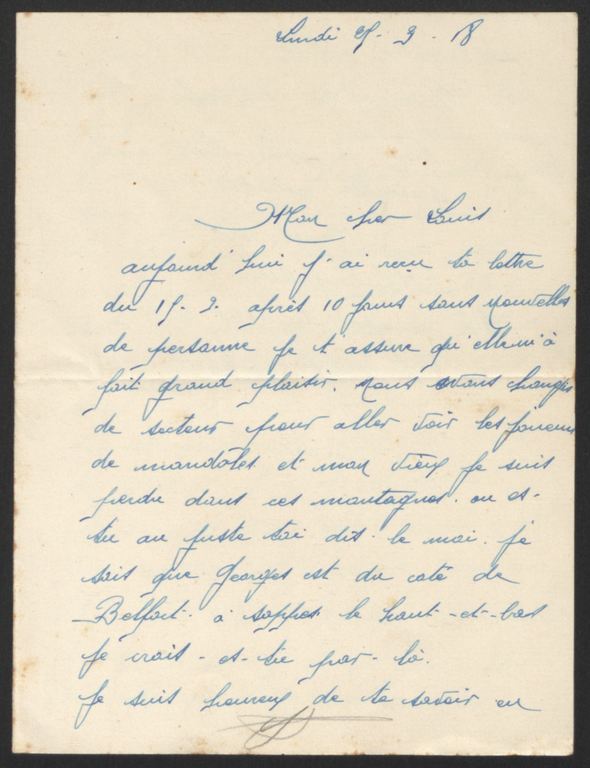 Lundi 25. 2. 18
Mon cher Louis
aujourd'hui j'ai reçu ta lettre
du 15. 2. après 10 jours sans nouvelles
de personne je t'assure qu'elle m'a
fait grand plaisir. nous avons changer
de secteur pour aller voir les joueurs
de mandoles et mon vieux je suis
perdu dans ces montagnes. ou es-
tu au juste toi dis. le moi. je
sais que Georges est du coté de
Belfort. à le haut-et-bas
je crois - es-tu par-là.
je suis heureux de te savoir en